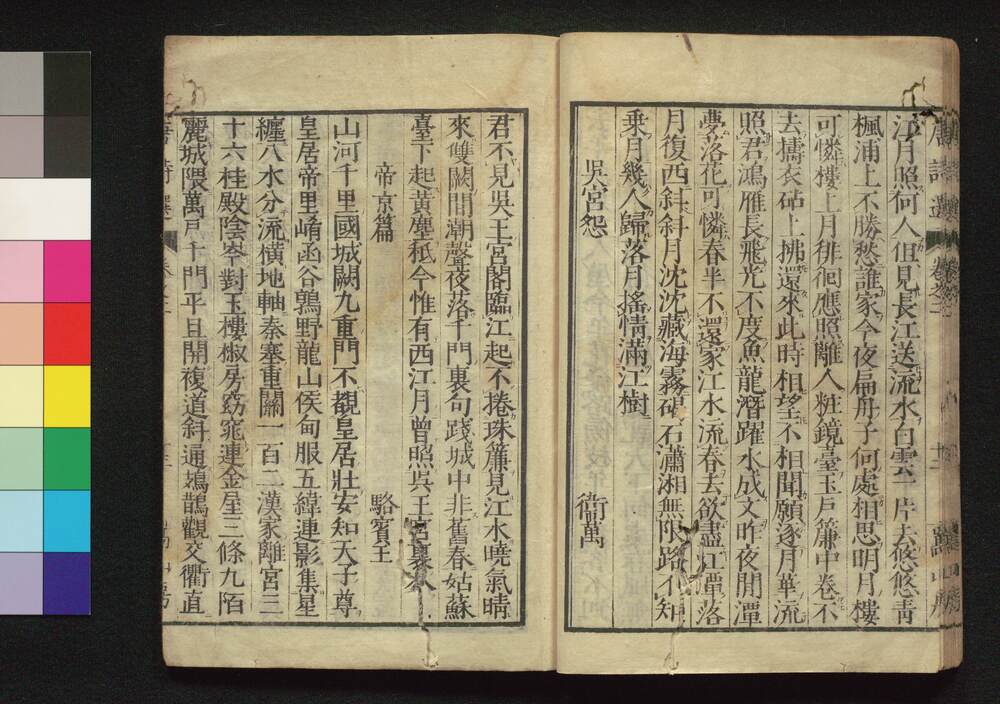 江月照何人但見長江送流水白雲一片去悠悠靑
楓浦上不勝愁誰家今夜扁舟子何處相思明月樓
可憐樓上月徘徊應照離人粧鏡臺玉戶簾中卷不
去擣衣砧上拂還來此時相望不相聞願逐月華流
照君鴻雁長飛光不度魚龍潛躍水成文昨夜閒潭
夢落花可憐春半不還家江水流春去欲盡江潭落
月復西斜斜月沈沈藏海霧碣石瀟湘無限路不知
乘月幾人歸落月搖情滿江樹
吳宮怨 衞萬
君不見吳王宮閣臨江起不捲珠簾見江水曉氣晴
來雙闕間潮聲夜落千門裏句踐城中非舊春姑蘇
臺下起黃塵秪今惟有西江月曾照吳王宮裏人
帝京篇 駱賓王
山河千里國城闕九重門不覩皇居壯安知天子尊
皇居帝里崤函谷鶉野龍山侯甸服五緯連影集星
纏八水分流橫地軸秦塞重關一百二漢家離宮三
十六桂殿陰岑對玉樓椒房窈窕連金屋三條九陌
麗城隈萬戶千門平旦開複道斜通鳷鵲觀交衢直
唐詩選 卷之二